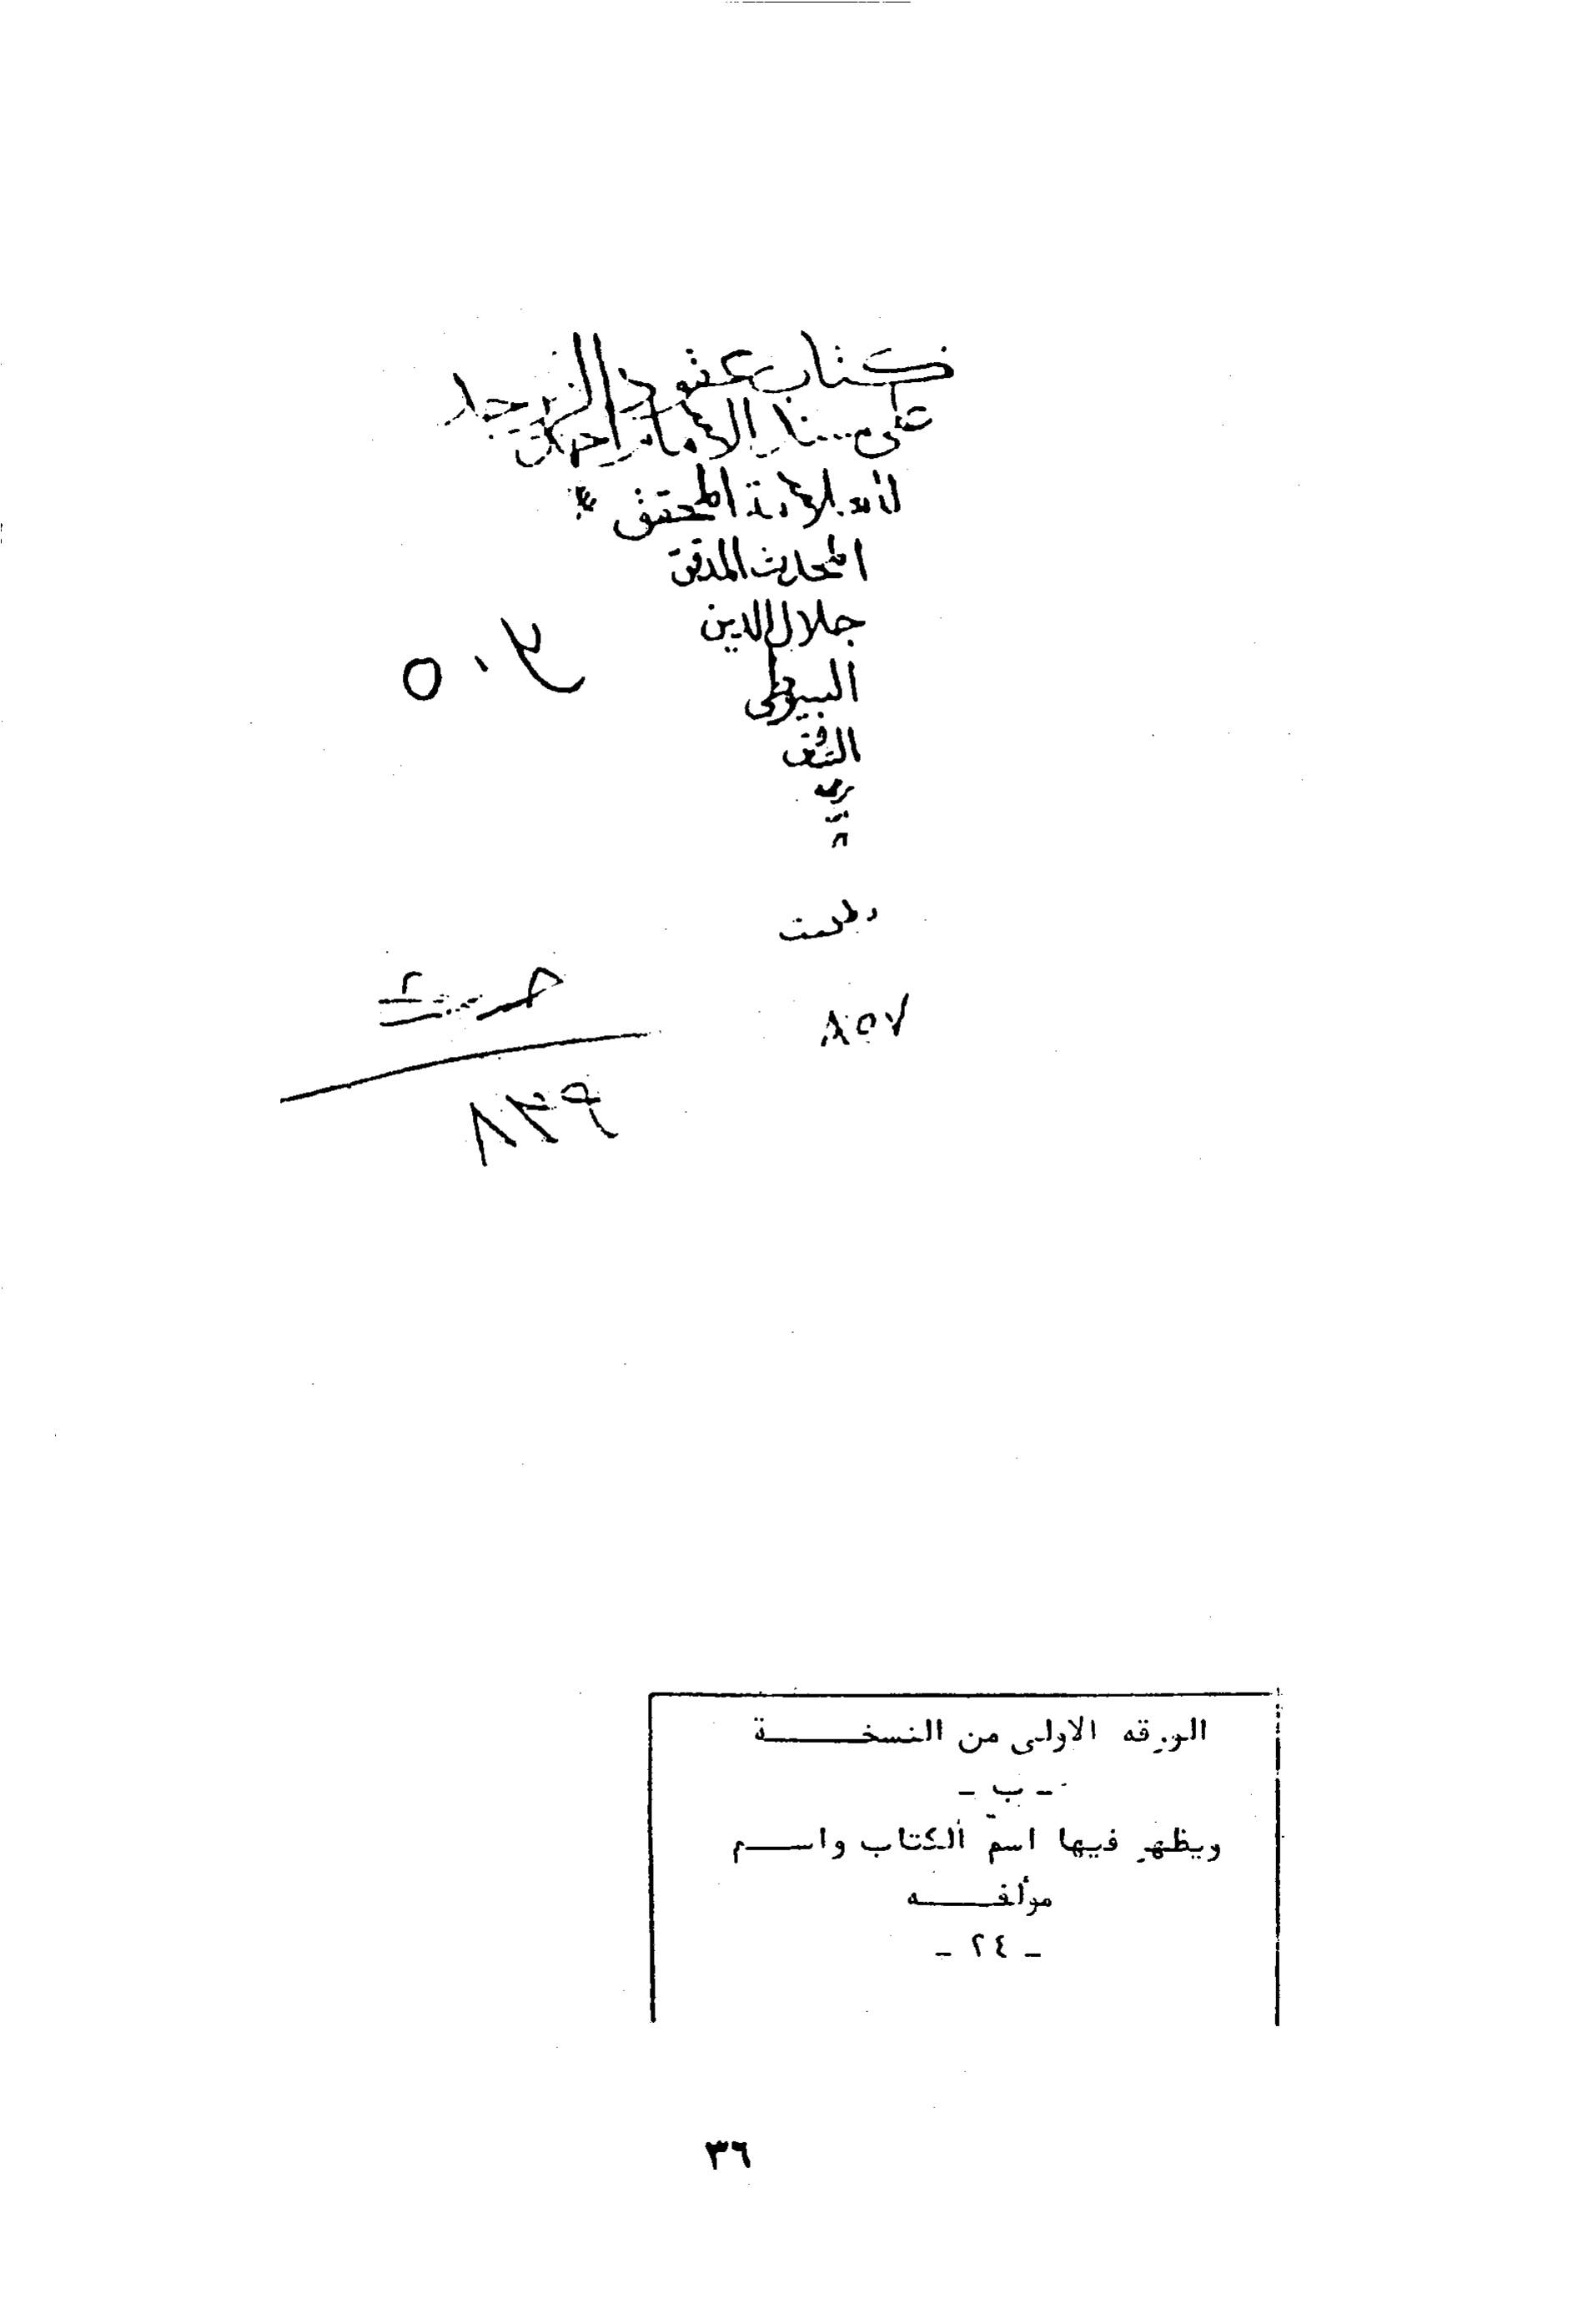 كتاب عقود الزبرجد
على مسند الإمام احمد
للعلامة المحقق
المحدث المدقق
جلال الدين
السيوطى
٥٠٣
حديث
٨٥٧
٨٣٩
الورقه الاولى من النسخـــــة
- ب -
ويظهر فيها اسم الكتاب واســـم
مؤلفـــــه
- ٢٤ -
٣٦